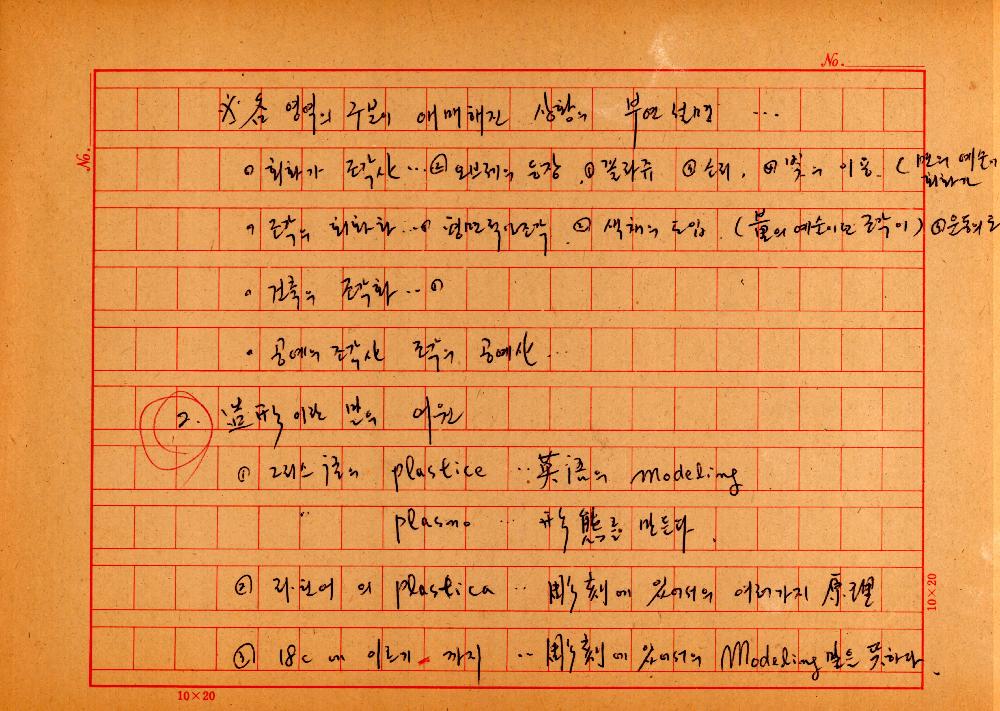 No.
No.
※ 各 영역의 구분이 애매해진 상황의 부연 설명 ...
회화가 조각化 ... ② 오브제의 등장 ① 꼴라쥬 ③ 소리. ④ 빛의 이용. (면의 예술이
회화가
조각의 회화화 ... ① 평면적인 조각 ② 색채의 도입. (量의 예술이던 조각이) ③ 운동의 도
건축의 조각화 ... ①
공예의 조각化 조각의 공예化 ...
2. 造形이란 말의 어원
① 그리스語의 plastice ‥ 英語의 modeling
〃 plasmo ... 形態를 만든다.
② 라틴어의 plastica ‥ 彫刻에 있어서의 여러가지 原理
③ 18c에 이르기 까지 ‥ 彫刻에 있어서의 Modeling 만을 뜻하다
10×20
10×20